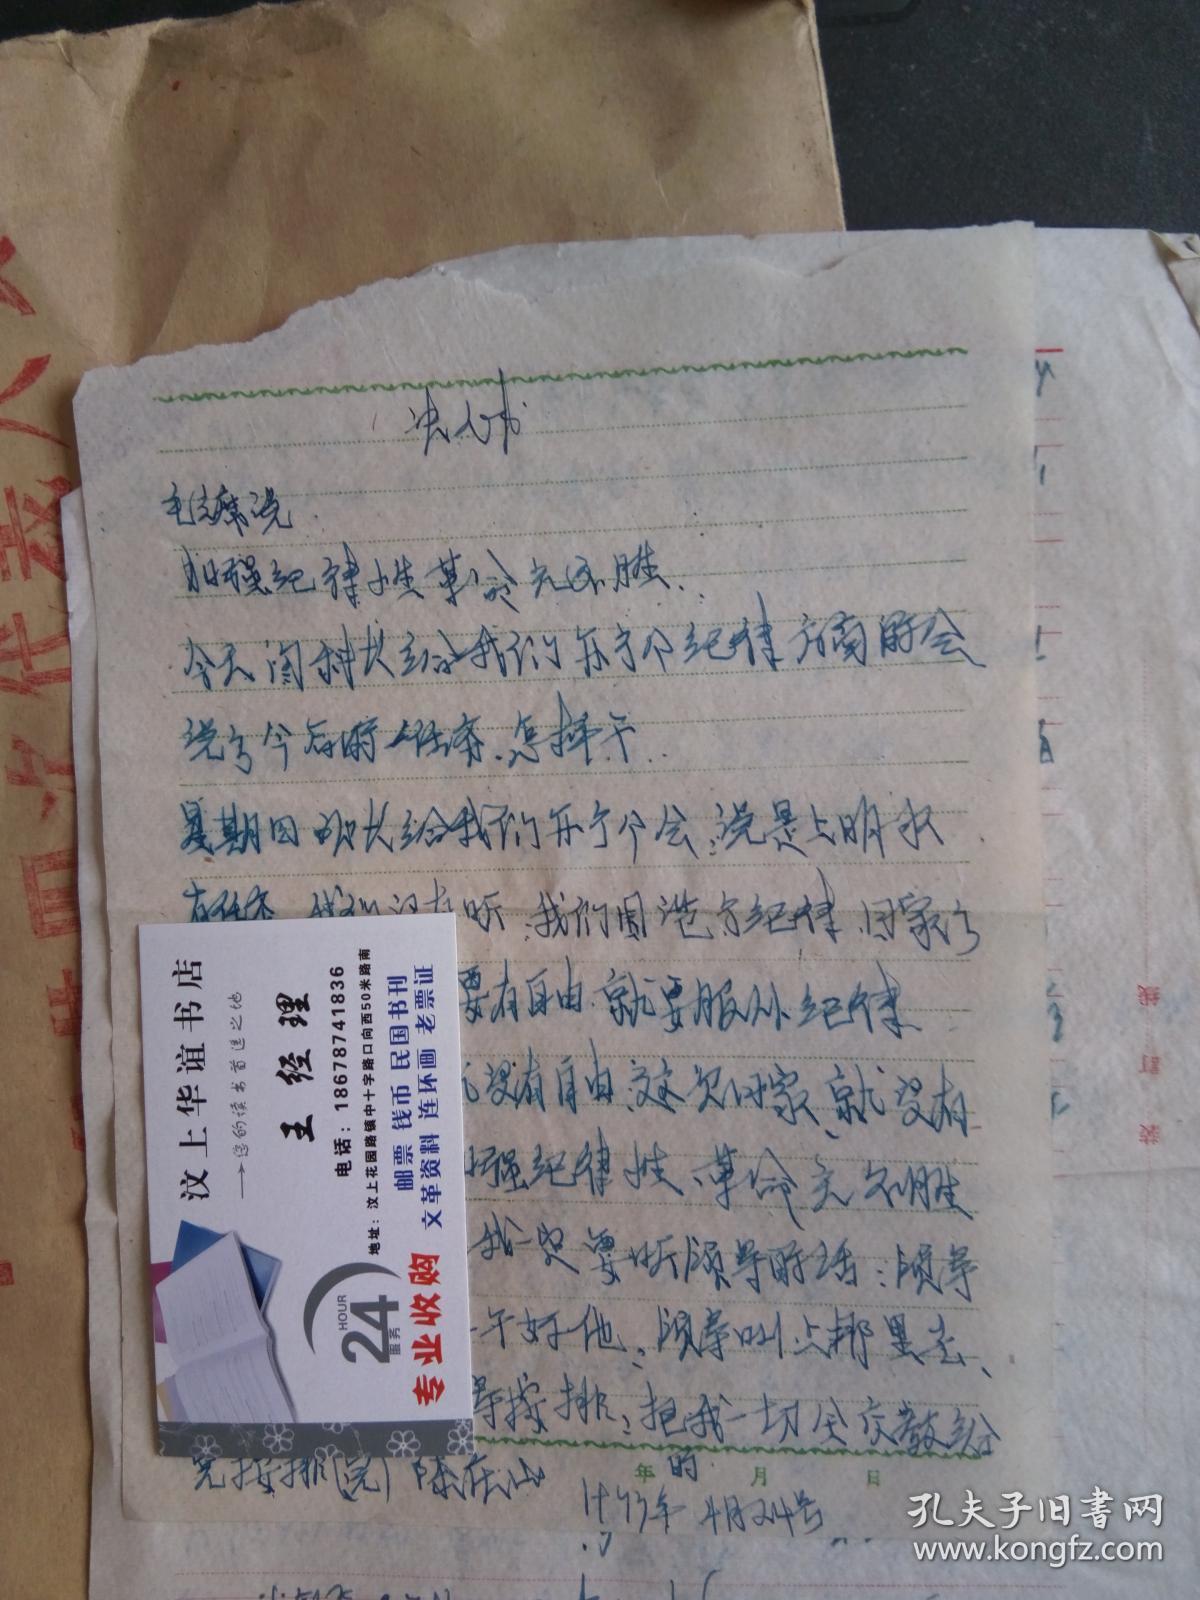 决心书
毛主席说
加强纪律性革命无不胜.
今天闫科长给我们开了个纪律方面的会
说了今后的任务.怎样干.
星期日 长给我们开了个会,说是上明水
有任务 我们没有听,我们 了纪律,回家了
要有自由.就要服从纪律
没有自由,这次回家、就没有
加强纪律性、革命无不胜
我一定要听领导的话:领导
干好他,领导叫上那里去、
导按排,把我一切全交 给
党按排(完)陈在山
年 月 日
的
1973年4月24号
汶上华谊书店
→您的读书首选之地
王 经 理
电话:18678741836
地址:汶上花园路镇中十字路口向西50米路南
邮票 钱币 民国书刊
文革资料 连环画 老票证
HOUR
24
服务
专业收购
装订线
孔夫子旧书网
www.kongfz.com